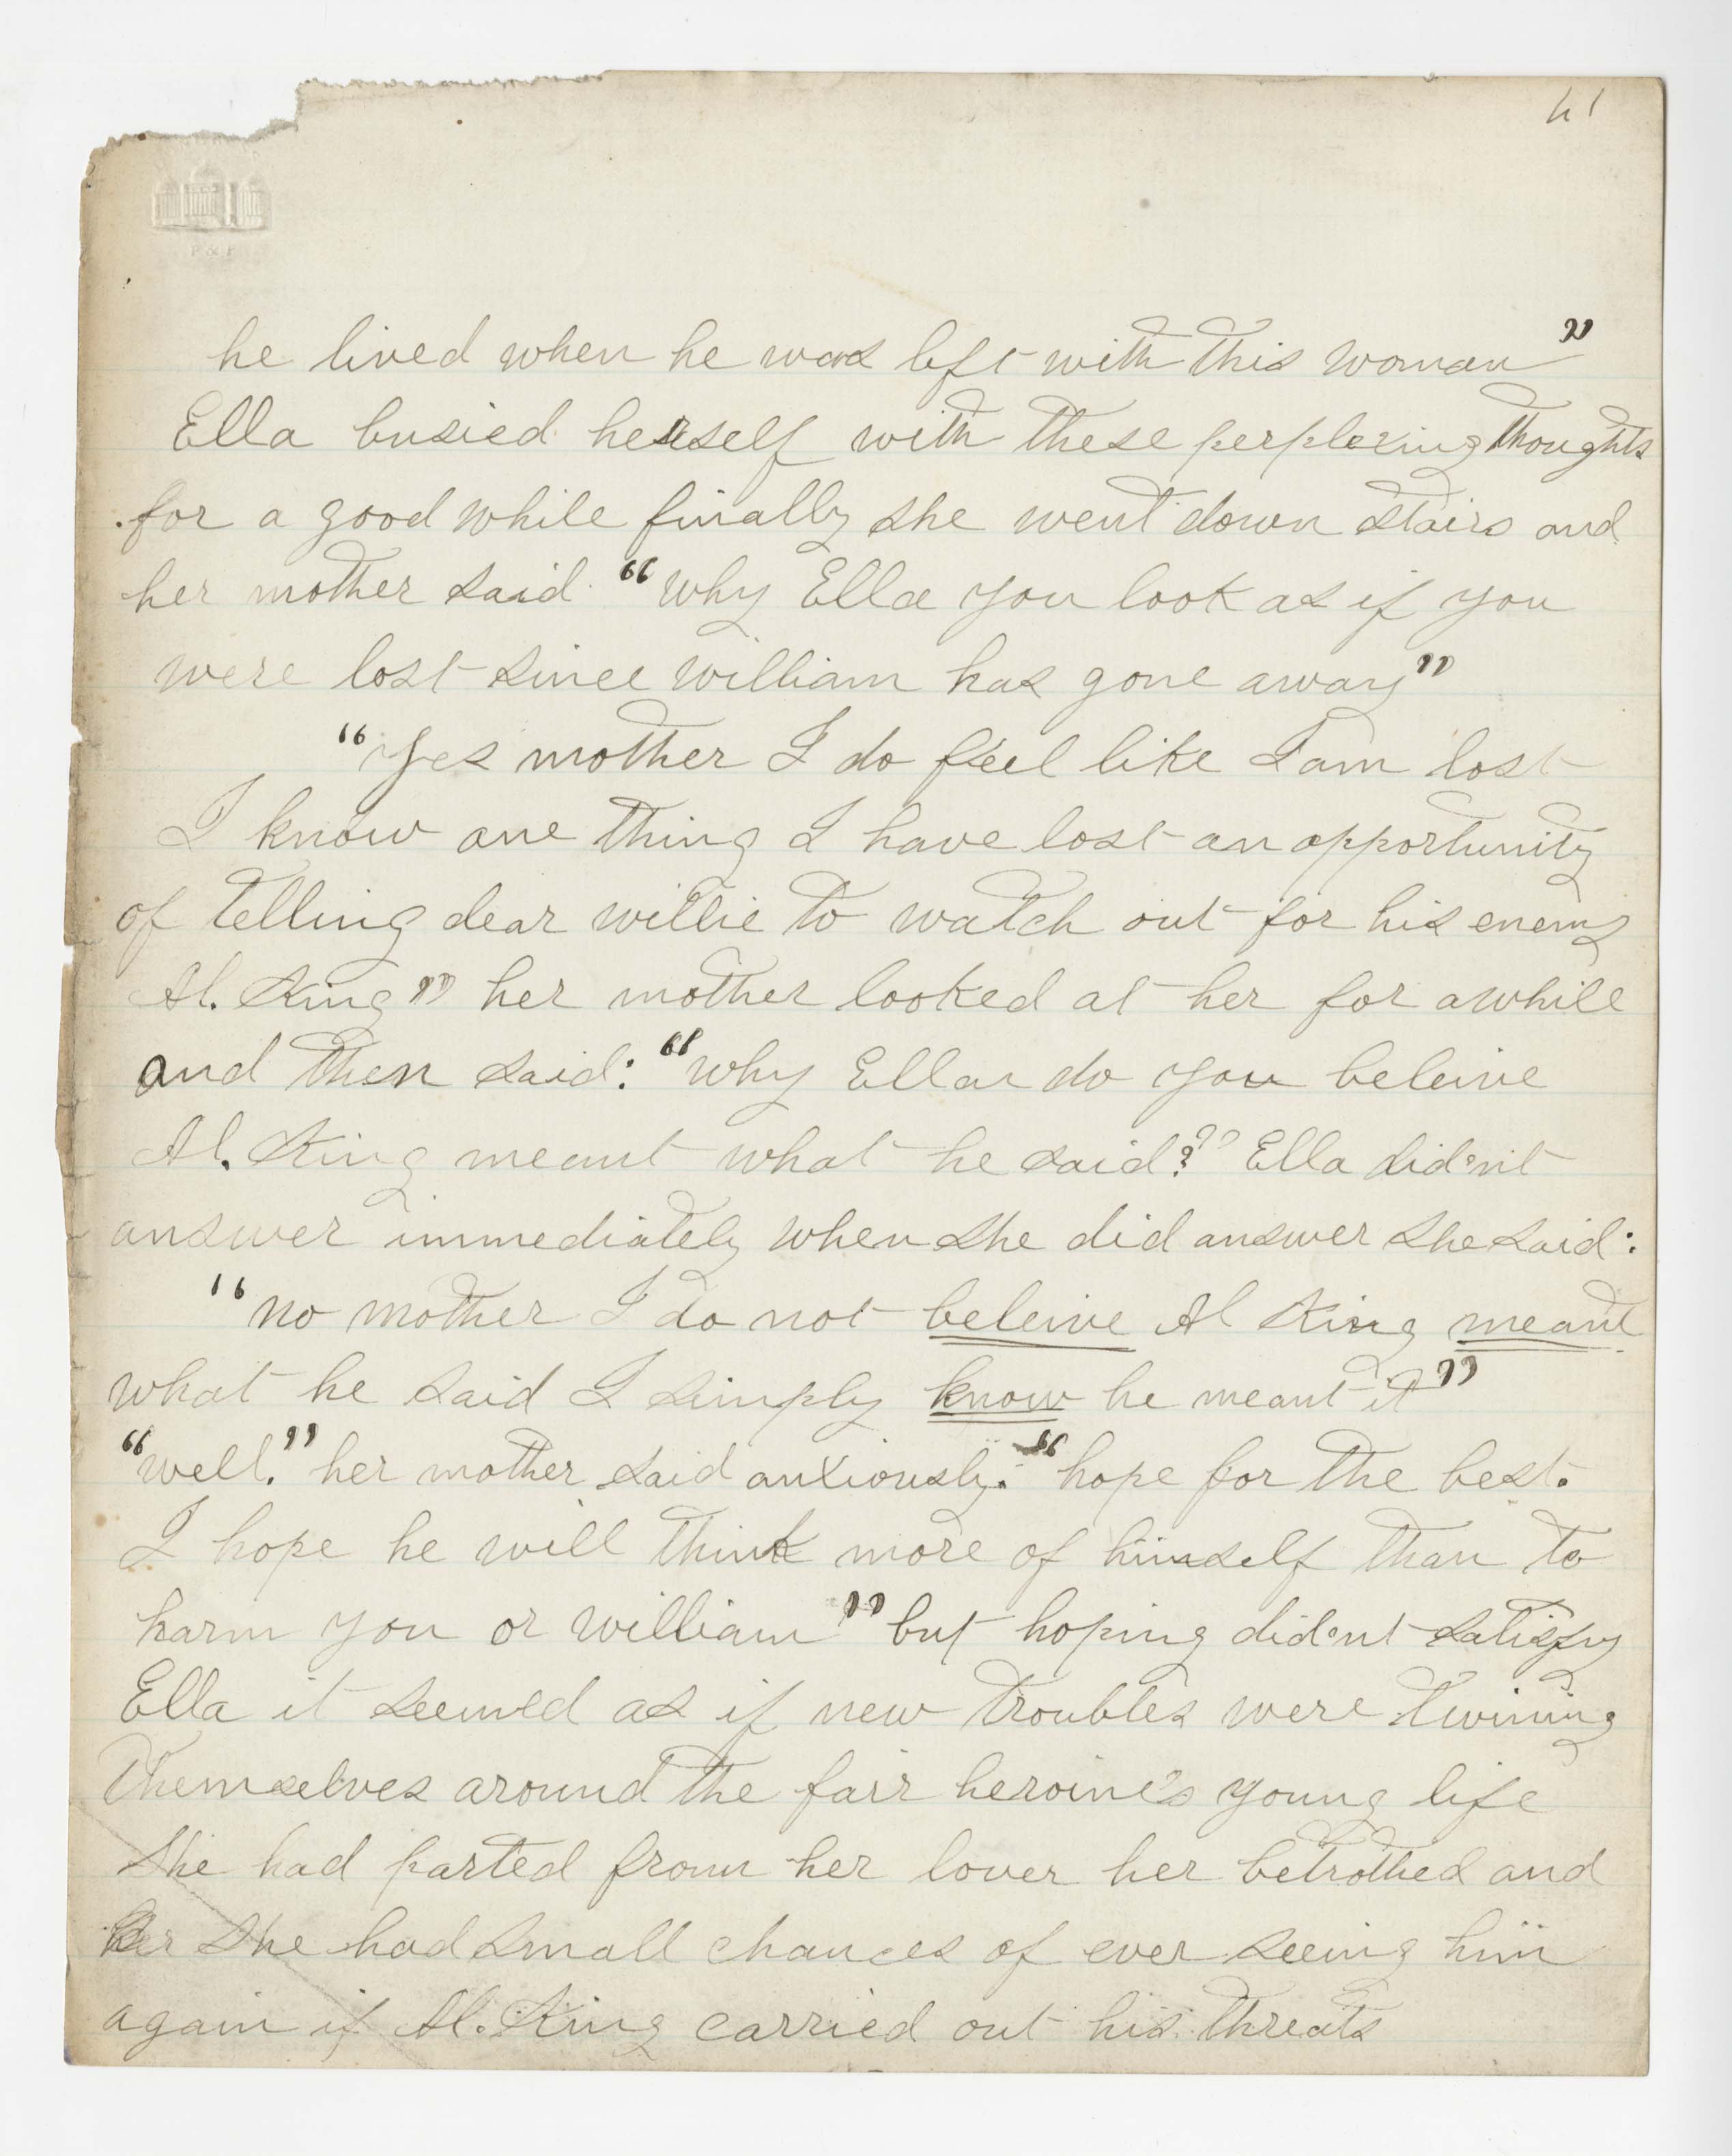 41
P & P
he lived when he was left with this woman"
Ella busied herself with these perplexing thoughts
for a good while finally she went down stairs and
her mother said "why Ella you look as if you
were lost since william has gone away"
"Yes mother I do feel like I am lost
I know one thing I have lost an opportunity
of telling dear willie to watch out for his enemy
Al. King" her mother looked at her for awhile
and then said: "why Ella do you beleive
Al. King meant what he said?" Ella did'nt
answer immediately when she did answer she said:
"no mother I do not beleive Al King meant
what he said I simply know he meant it"
"well." her mother said anxiously. "hope for the best.
I hope he will think more of himself than to
harm you or william" but hoping did'nt satisfy
Ella it seemed as if new troubles were twining
themselves around the fair heroine's young life
She had parted from her lover her betrothed and
her she had small chances of ever seeing him
again if Al. King carried out his threats